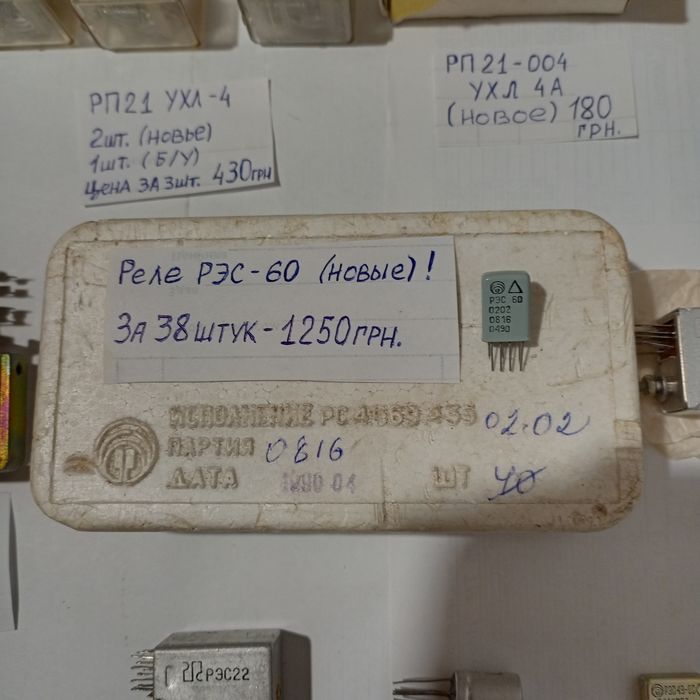 РП21 УХЛ-4
2шт. (новые)
1шт. (Б/У)
цена за 3шт. 430грн
РП21-004
УХЛ 4А
(новое) 180
грн.
Реле РЭС-60 (новые)!
За 38 штук - 1250грн.
РЭС 60
0202
0816
0490
ИСПОЛНЕНИЕ РС4.569.435 02.02
ПАРТИЯ 0816
ДАТА 1990 04 ШТ 40
РЭС22